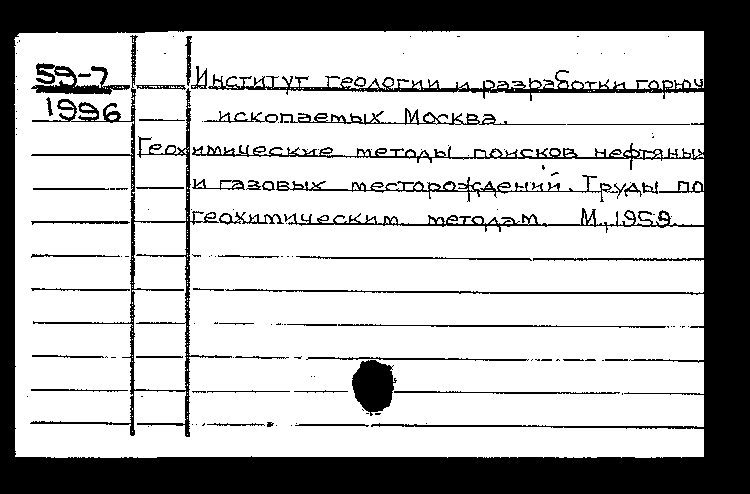 59-7
1996
Институт геологии и разработки горюч
ископаемых Москва.
Геохимические методы поисков нефтяных
и газовых месторождений. Труды по
геохимическим методам. М., 1959.